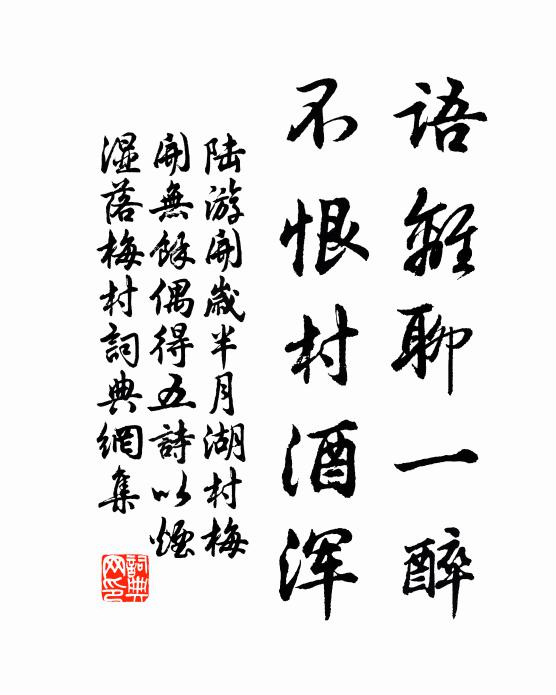 语離聊一醉
不恨村酒浑
陆游開歲半月湖村梅
開無餘偶得五詩以煙
湿落梅村詞典網集
詞典網印